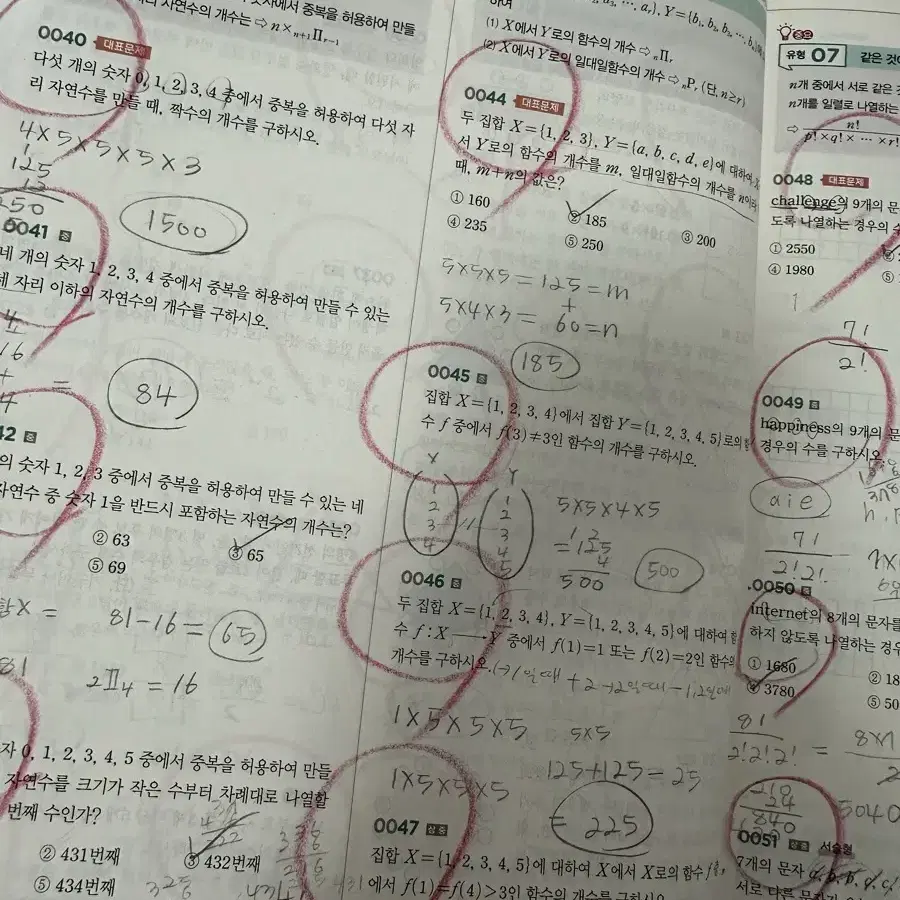 리 자연수의 개수는 ⇨ n×ₙ₊₁Πᵣ₋₁
0040 대표문제
다섯 개의 숫자 0, 1, 2, 3, 4 중에서 중복을 허용하여 다섯 자
리 자연수를 만들 때, 짝수의 개수를 구하시오.
4×5×5×5×3
125
12
250
1500
0041 중
네 개의 숫자 1, 2, 3, 4 중에서 중복을 허용하여 만들 수 있는
네 자리 이하의 자연수의 개수를 구하시오.
4
16
+
=
84
4
42 중
의 숫자 1, 2, 3 중에서 중복을 허용하여 만들 수 있는 네
자연수 중 숫자 1을 반드시 포함하는 자연수의 개수는?
② 63
③ 65
⑤ 69
X = 81-16 = 65
81
₂Π₄ = 16
자 0, 1, 2, 3, 4, 5 중에서 중복을 허용하여 만들
자연수를 크기가 작은 수부터 차례대로 나열할
번째 수인가?
② 431번째
③ 432번째
⑤ 434번째
하여
(1) X에서 Y로의 함수의 개수 ⇨ ₙΠᵣ
(2) X에서 Y로의 일대일함수의 개수 ⇨ ₙPᵣ (단, n≥r)
0044 대표문제
두 집합 X={1, 2, 3}, Y={a, b, c, d, e}에 대하여 X에
서 Y로의 함수의 개수를 m, 일대일함수의 개수를 n이라
때, m+n의 값은?
① 160
② 185
③ 200
④ 235
⑤ 250
5×5×5 = 125 = m
+
5×4×3 = 60 = n
185
0045 중
집합 X={1, 2, 3, 4}에서 집합 Y={1, 2, 3, 4, 5}로의
수 f 중에서 f(3)≠3인 함수의 개수를 구하시오.
X
Y
1
2
3
4
1
2
3
4
5
5×5×4×5
=125
4
500
500
0046 중
두 집합 X={1, 2, 3, 4}, Y={1, 2, 3, 4, 5}에 대하여 함
수 f : X → Y 중에서 f(1)=1 또는 f(2)=2인 함수의
개수를 구하시오.
1×5×5×5
5×5
1×5×5×5
125+125-25
= 225
0047 상중
집합 X={1, 2, 3, 4, 5}에 대하여 X에서 X로의 함수 f
에서 f(1)=f(4)>3인 함수의 개수를 구하시오
중요
유형 07 같은 것이
n개 중에서 서로 같은 것
n개를 일렬로 나열하는
⇨ n! / p!×q!× ⋯ ×r!
0048 대표문제
challenge의 9개의 문
도록 나열하는 경우의 수
① 2550
④ 1980
7!
2!
0049 중
happiness의 9개의 문
경우의 수를 구하시오.
aie
7!
2!2!
0050 중
internet의 8개의 문자를
하지 않도록 나열하는 경우
① 1680
② 18
④ 3780
⑤ 50
8!
2!2!2!
=
210
24
840
5040
0051 상중 서술형
7개의 문자 a, b, b, c, c